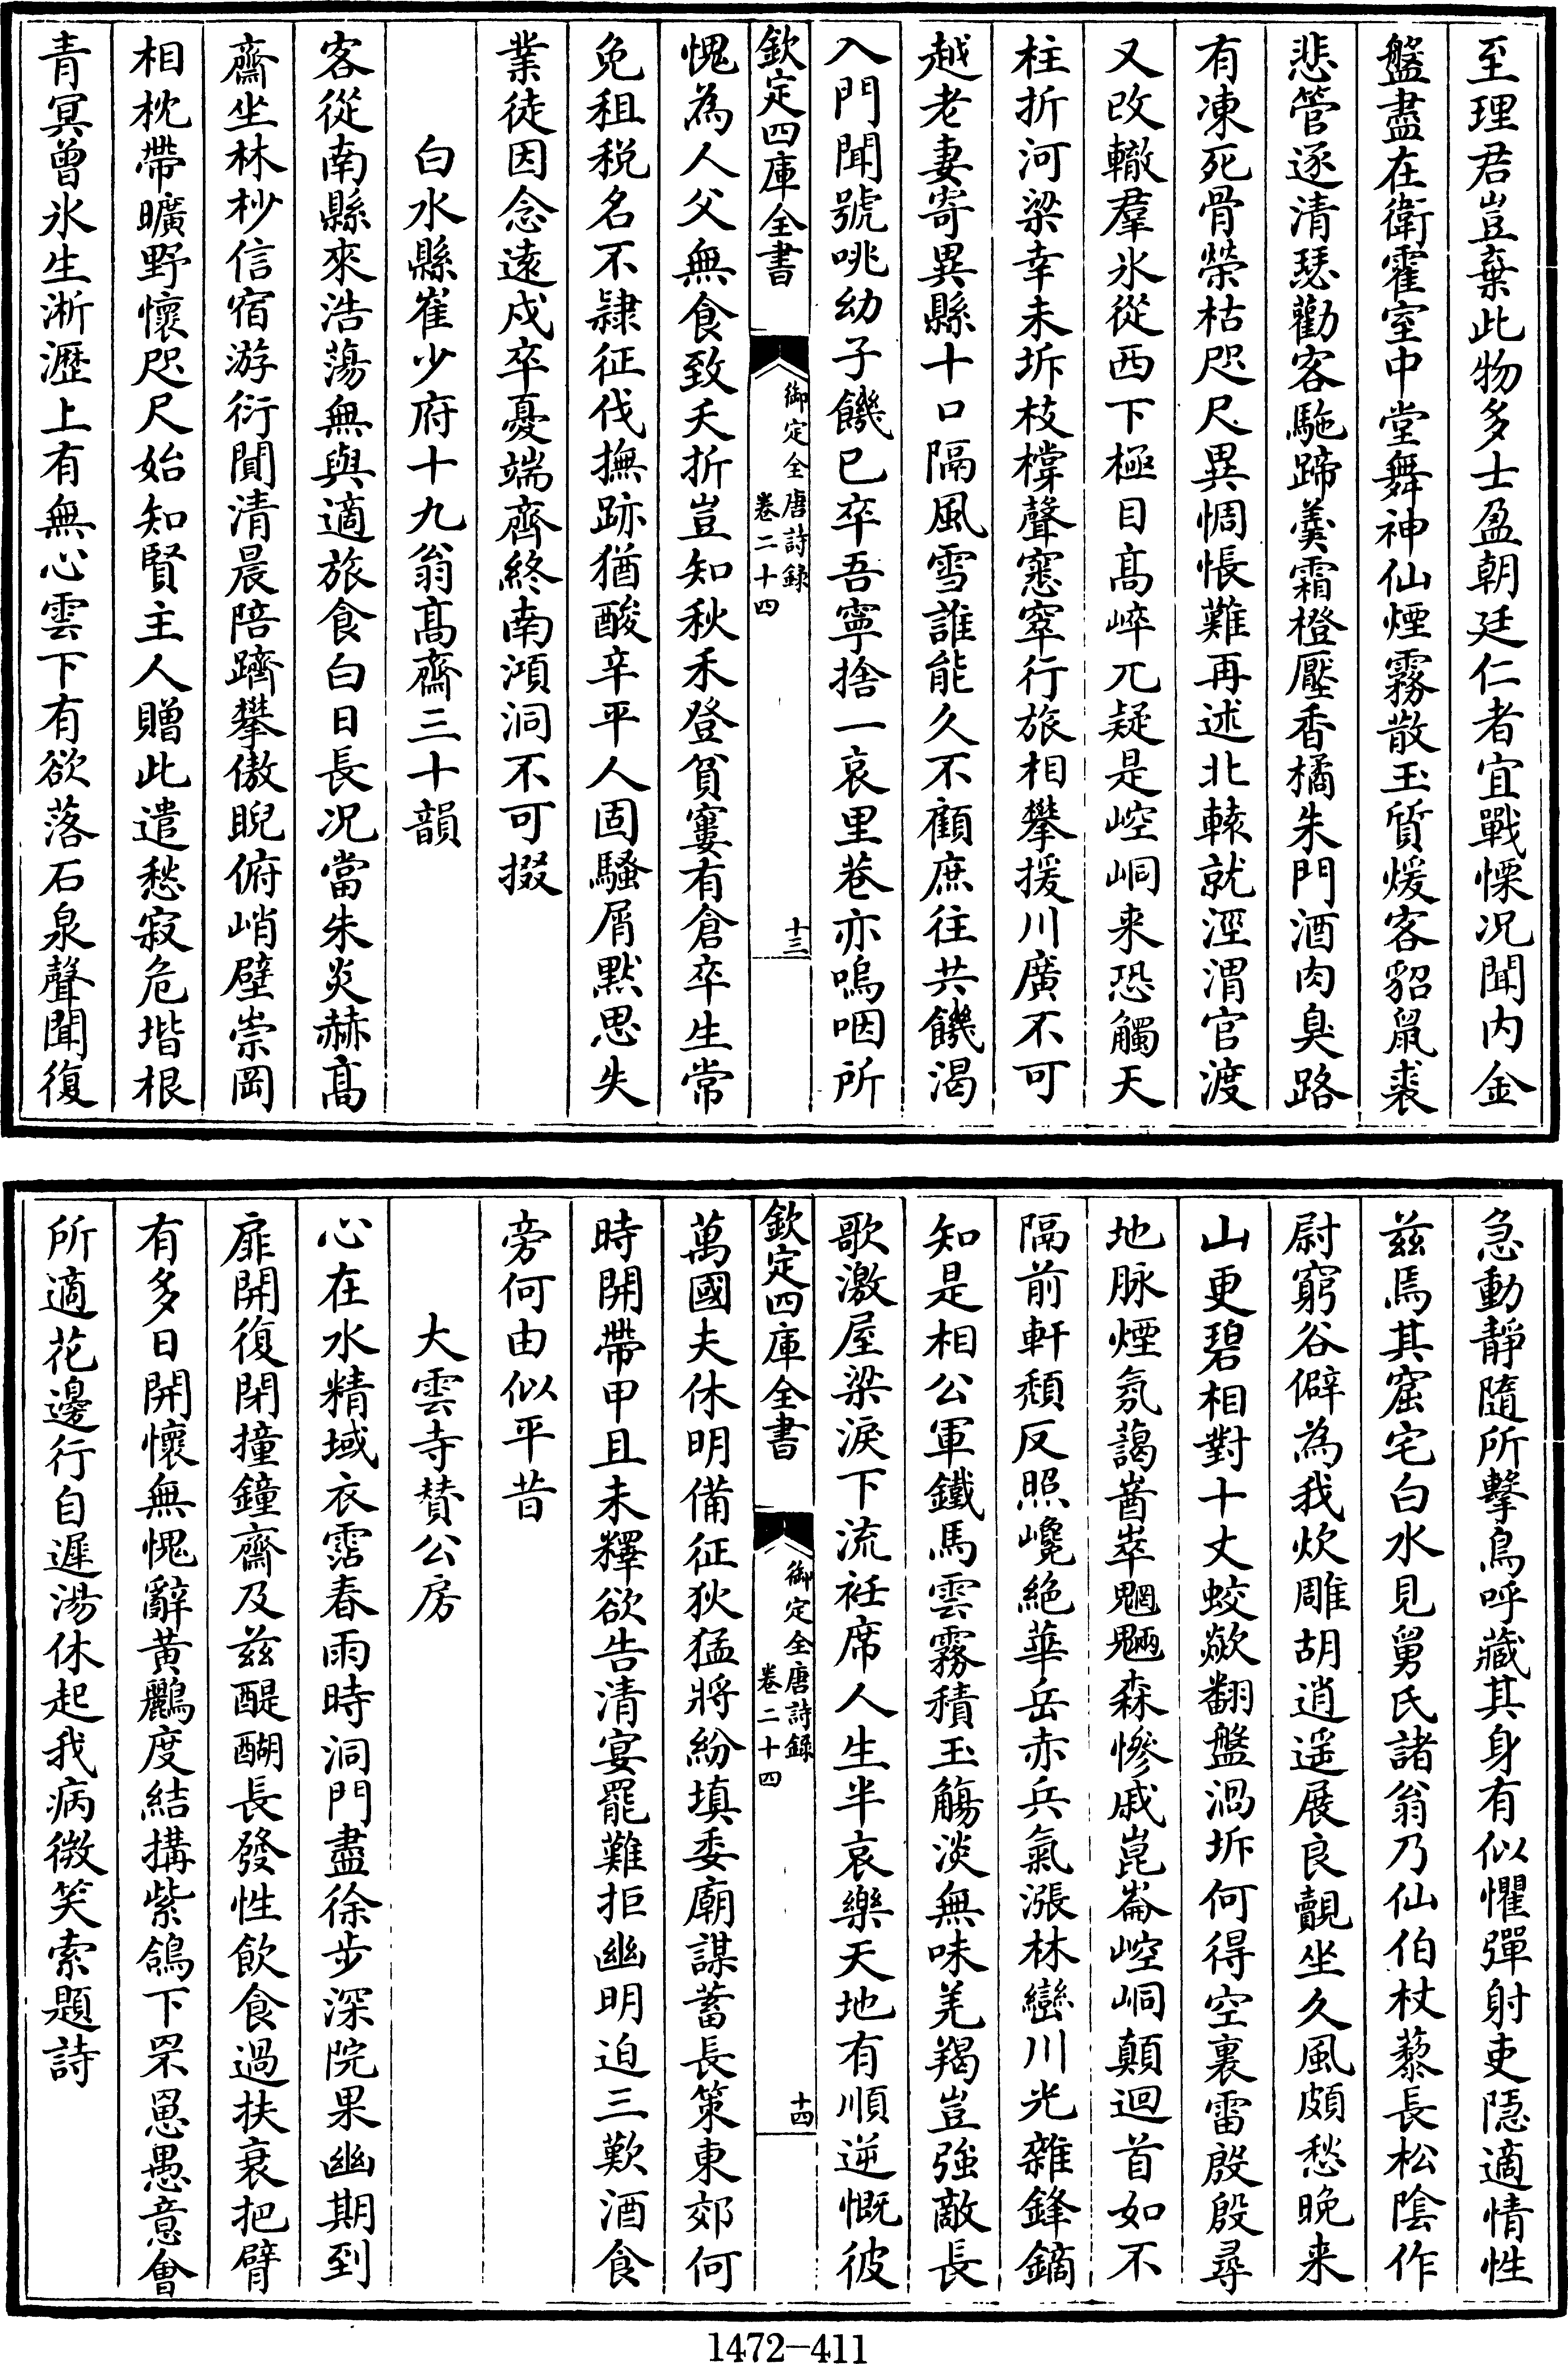 至理君豈棄此物多士盈朝廷仁者宜戰慄况聞内金
盤盡在衛霍室中堂舞神仙煙霧散玉質煖客貂鼠裘
悲管逐清瑟勸客駞蹄羮霜橙壓香橘朱門酒肉臭路
有凍死骨榮枯咫尺異惆悵難再述北轅就涇渭官渡
又改轍羣氷從西下極目髙崒兀疑是崆峒来恐觸天
柱折河梁幸未坼枝橕聲窸窣行旅相攀援川廣不可
越老妻寄異縣十口隔風雪誰能久不顧庶往共饑渴
入門聞號咷幼子饑已卒吾寧捨一哀里巷亦嗚咽所
欽定四庫全書
御定全唐詩録
卷二十四
十三
愧為人父無食致夭折豈知秋禾登貧窶有倉卒生常
免租税名不隷征伐撫跡猶酸辛平人固騷屑默思失
業徒因念逺戍卒憂端齊終南澒洞不可掇
白水縣崔少府十九翁髙齋三十韻
客從南縣來浩蕩無與適旅食白日長况當朱炎赫髙
齋坐林杪信宿游衍閴清晨陪躋攀傲睨俯峭壁崇岡
相枕帶曠野懷咫尺始知賢主人贈此遣愁寂危堦根
青冥曾氷生淅瀝上有無心雲下有欲落石泉聲聞復
急動靜隨所擊鳥呼藏其身有似懼彈射吏隠適情性
兹焉其窟宅白水見舅氏諸翁乃仙伯杖藜長松隂作
尉窮谷僻為我炊雕胡逍遥展良覿坐久風頗愁晩来
山更碧相對十丈蛟歘翻盤渦坼何得空裏雷殷殷尋
地脉煙氛藹崷崒魍魎森慘戚崑崙崆峒顛迴首如不
隔前軒頽反照巉絶華岳赤兵氣漲林巒川光雜鋒鏑
知是相公軍鐵馬雲霧積玉觴淡無味羌羯豈強敵長
歌激屋梁淚下流衽席人生半哀樂天地有順逆慨彼
欽定四庫全書
御定全唐詩録
卷二十四
十四
萬國夫休明備征狄猛將紛填委廟謀蓄長策東郊何
時開帶甲且未釋欲告清宴罷難拒幽明迫三歎酒食
旁何由似平昔
大雲寺賛公房
心在水精域衣霑春雨時洞門盡徐步深院果幽期到
扉開復閉撞鐘齋及兹醍醐長發性飲食過扶衰把臂
有多日開懷無愧辭黄鸝度結搆紫鴿下罘罳愚意會
所適花邊行自遲湯休起我病微笑索題詩
1472-411